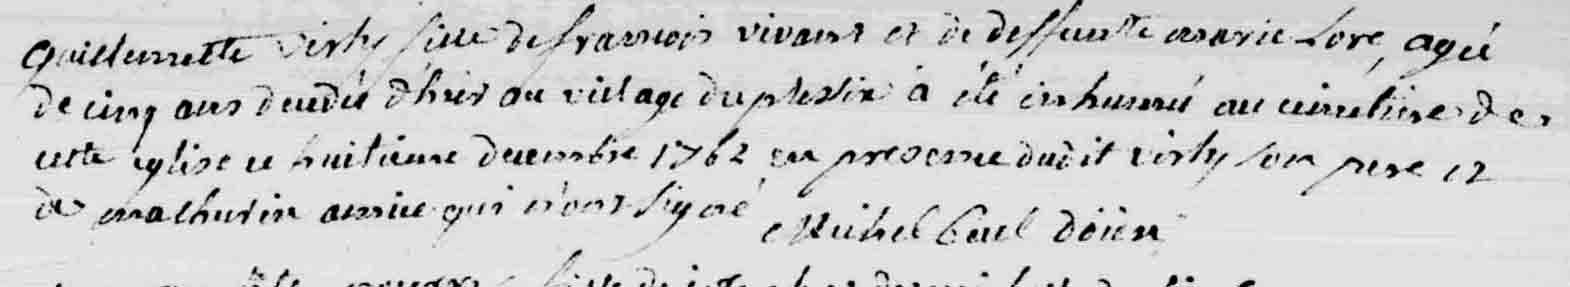 Guillemette Virly fille de francois vivant et de deffunte marie Lore, agée
de cinq ans decedée d'hier au village du plessix a été inhumée au cimetiere de
cette eglise ce huitieme decembre 1762 en presence dudit virly son pere et
de mathurin amice qui n'ont signé Michel doien
fille de